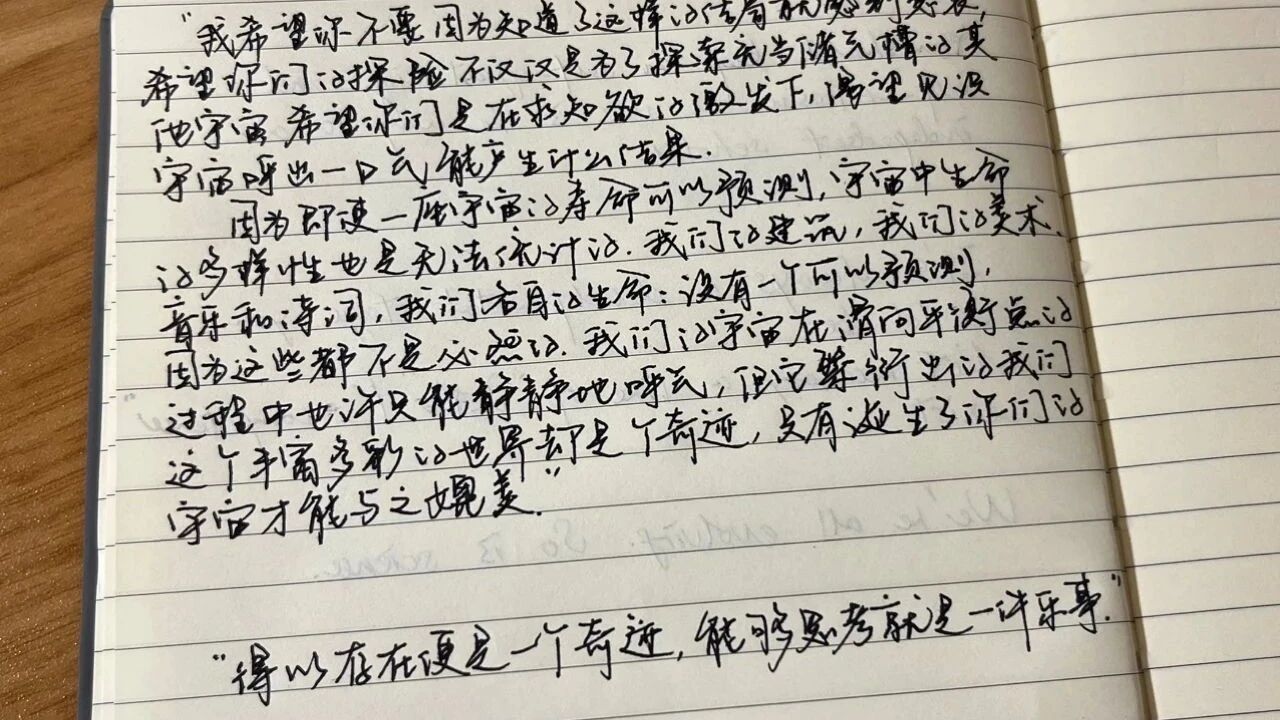 “我希望你不要因为知道了这样的结局就感到悲哀,
希望你们的探险不仅仅是为了探索充当储气槽的其
他宇宙 希望你们是在求知欲的激发下,渴望见没
宇宙呼出一口气能产生什么结果.
因为即便一座宇宙的寿命可以预测,宇宙中生命
的多样性也是无法估计的.我们的建筑,我们的美术.
音乐和诗词,我们各自的生命:没有一个可以预测,
因为这些都不是必然的.我们的宇宙在滑向平衡点的
过程中也许只能静静地呼气,但它繁衍出的我们
这个丰富多彩的世界却是个奇迹,只有诞生了你们的
宇宙才能与之媲美.”
We're all evolving. So is science.
“得以存在便是一个奇迹,能够思考就是一件乐事.”